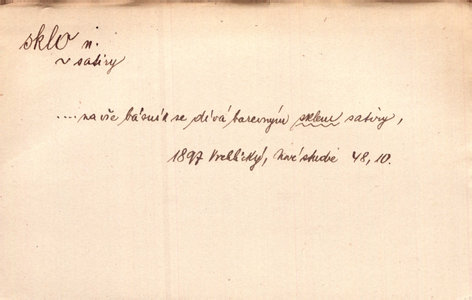 sklo n.
~ satiry
.... na vše básník se dívá barevným sklem satiry,
1897 Vrchlický, Nové studie 48, 10.